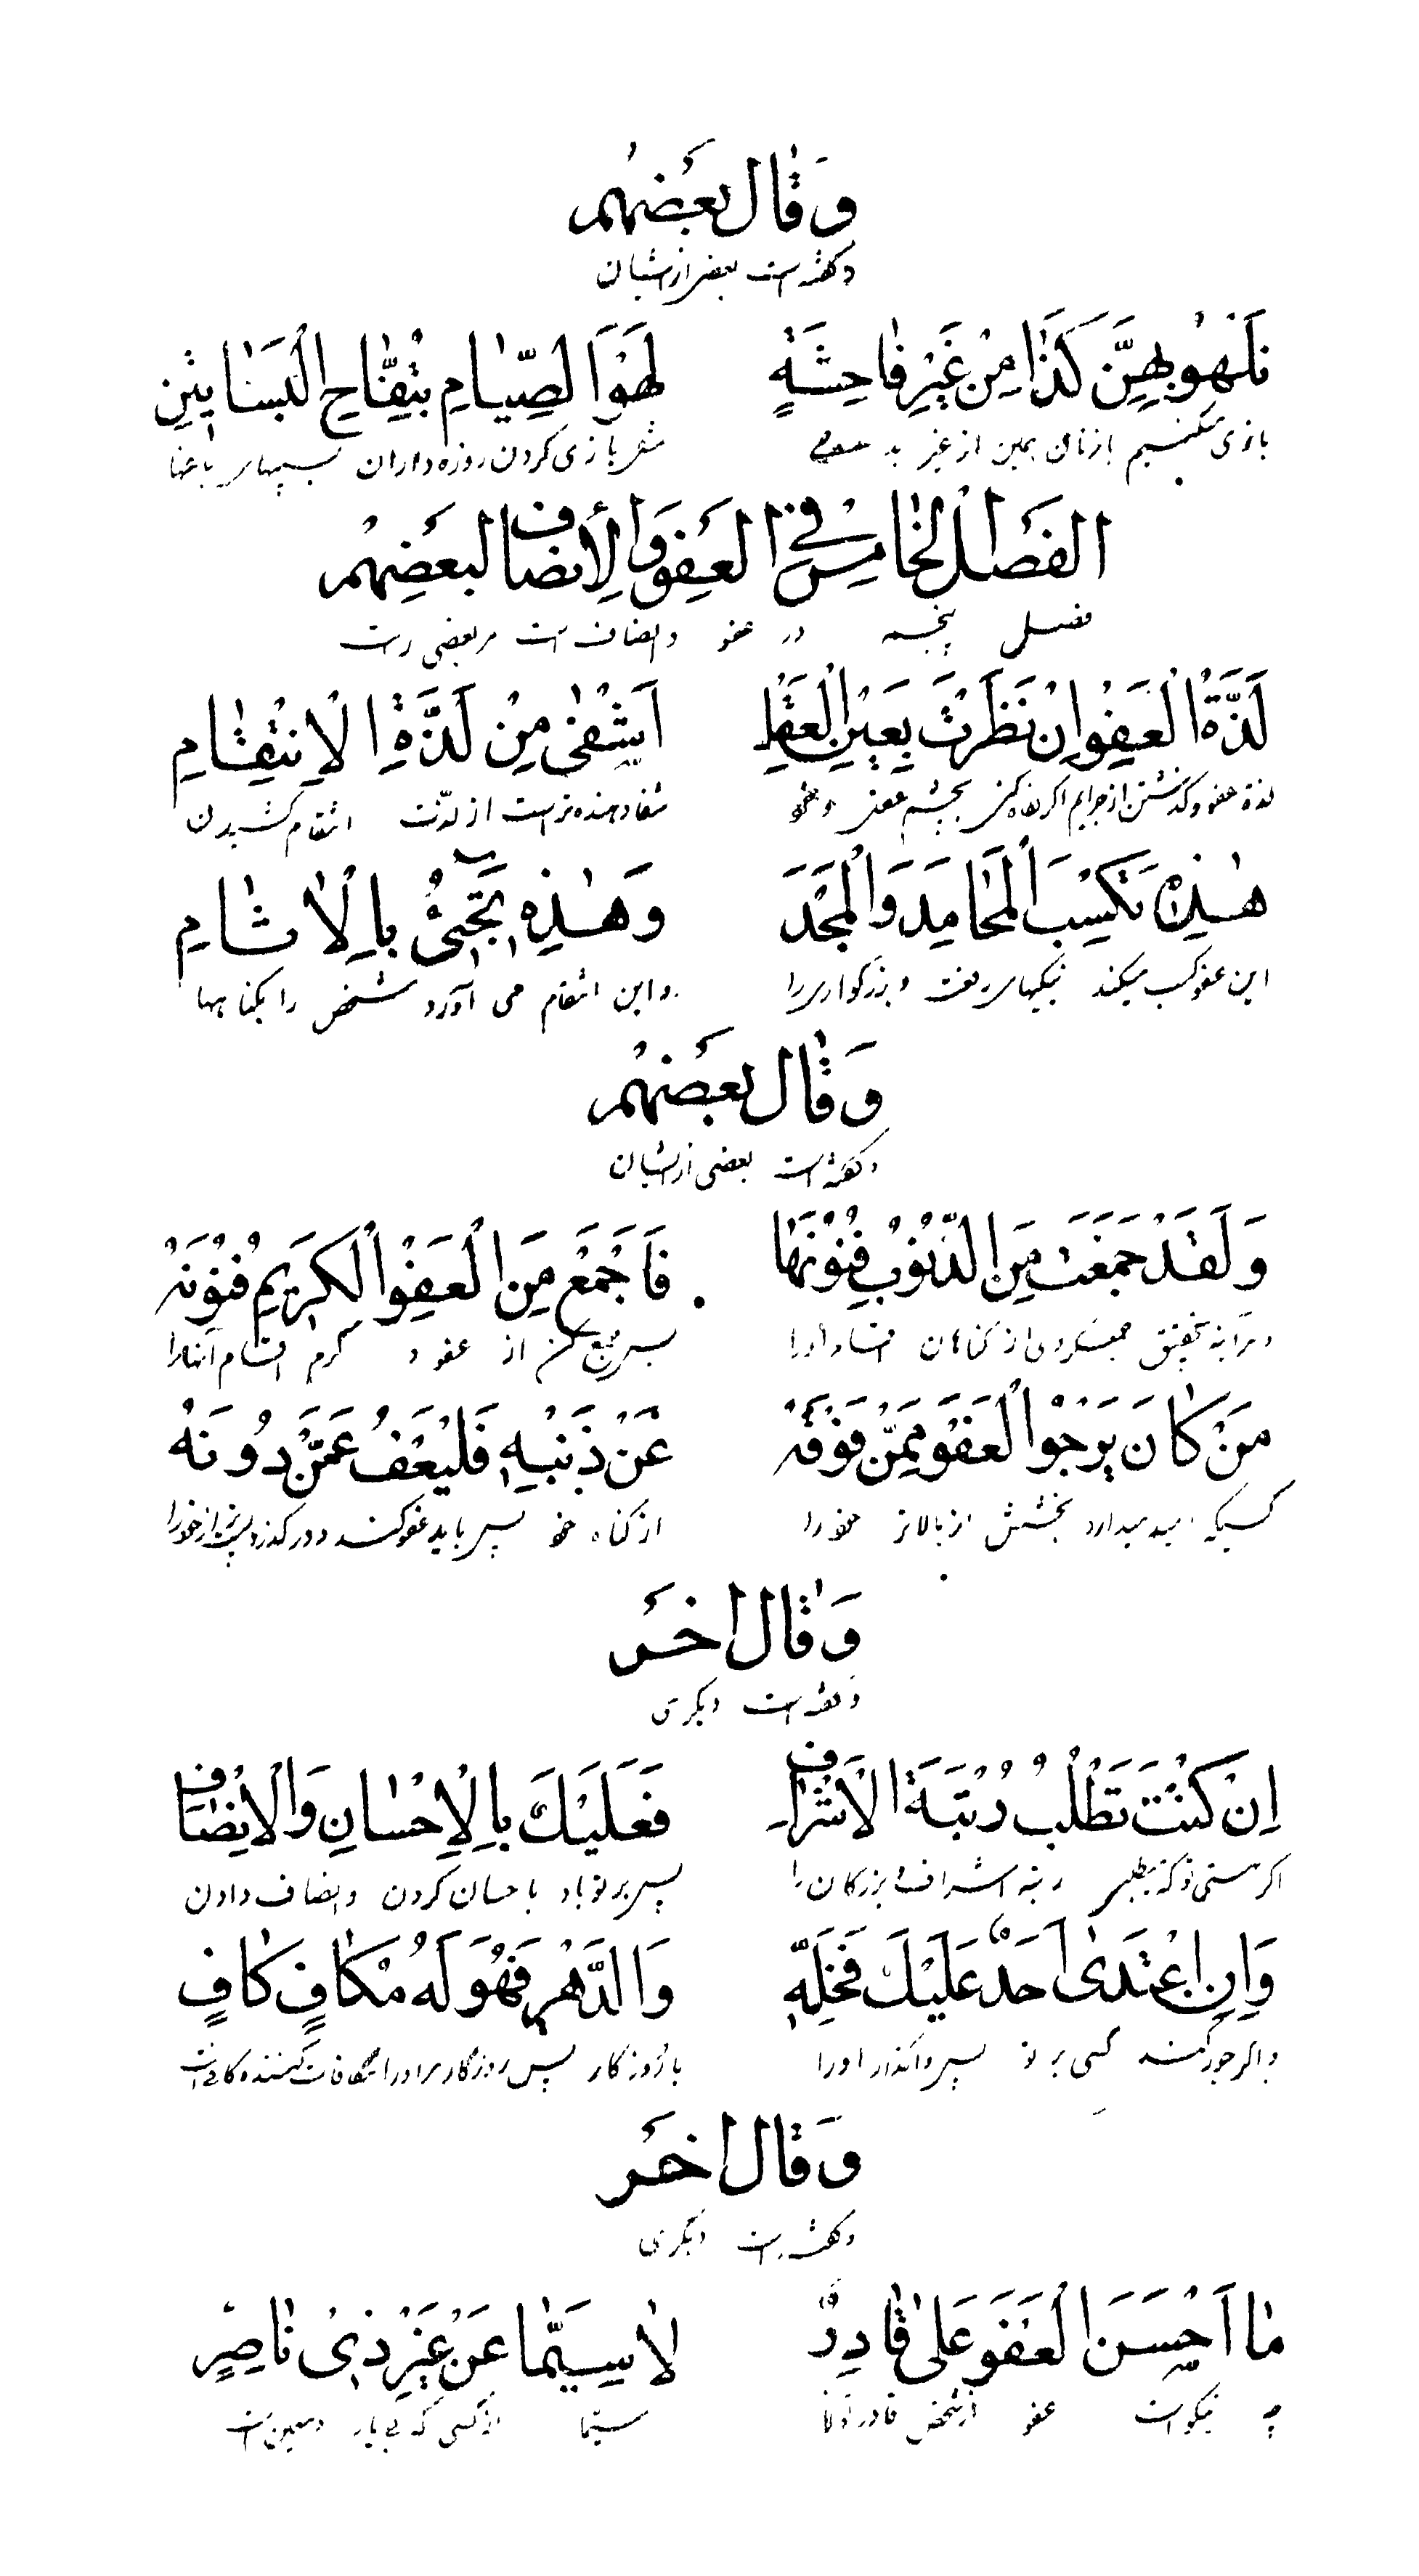 وَقَالَ بَعْضُهُمْ
وگفته است بعضی از ایشان
نَلْهُو بِهِنَّ كَذَا مِنْ غَيْرِ فَاحِشَةٍ لَهْوَ الصِّيَامِ بِتُفَّاحِ الْبَسَاتِينِ
بازی میکنیم بازنان همین از غیر بد مثل بازی کردن روزه داران بسیبهای باغها
الفَصْلُ الخَامِسُ فِي العَفْوِ وَالْأِنصَافِ لِبَعْضِهِمْ
فصل پنجم در عفو و انصاف است مر بعضی راست
لَذَّةُ الْعَفْوِ اِنْ نَظَرْتَ بِعَيْنِ الْعَقْلِ اَشْفٰى مِنْ لَذَّةِ الْاِنْتِقَامِ
لذة عفو وگذشتن از جرایم اگر نگاه کنی بچشم عقل شفا دهنده تر است از لذت انتقام کشیدن
هٰذِهِ تَكْسِبُ الْمَحَامِدَ وَالْمَجْدَ وَهٰذِهِ تَجِيْءُ بِالْاٰثَامِ
این عفو کسب میکند نیکیهای و بزرگواری را واین انتقام می آورد شخص را بگناهها
وَقَالَ بَعْضُهُمْ
وگفته است بعضی از ایشان
وَلَقَدْ جَمَعْتُ مِنَ الذُّنُوْبِ فُنُوْنَهَا فَاجْمَعْ مِنَ الْعَفْوِ الْكَرِيْمِ فُنُوْنَهُ
وهرآینه بتحقیق جمع کردی از گناهان پس جمع کن از عفو و کرم اقسام آنها را
مَنْ كَانَ يَرْجُو الْعَفْوَ مِمَّنْ فَوْقَهُ عَنْ ذَنْبِهِ فَلْيَعْفُ عَمَّنْ دُوْنَهُ
کسیکه امید میدارد بخشش از بالاتر خود را از گناه خود پس باید عفو کند و درگذرد از خود را
وَقَالَ اٰخَرُ
وگفته است دیگری
اِنْ كُنْتَ تَطْلُبُ رُتْبَةَ الْاَشْرَافِ فَعَلَيْكَ بِالْاِحْسَانِ وَالْاِنْصَافِ
اگر هستی تو که بطلبی رتبه اشراف و بزرگان را پس بر تو باد باحسان کردن و انصاف دادن
وَاِنِ اعْتَدٰى اَحَدٌ عَلَيْكَ فَخَلِّهِ وَالدَّهْرَ فَهُوَ لَهُ مُكَافٍ كَافٍ
و اگر جور کند کسی بر تو پس واگذار او را با روزگار پس روزگار مر او را مکافات کننده کافی است
وَقَالَ اٰخَرُ
وگفته است دیگری
مَا اَحْسَنَ الْعَفْوَ عَلٰى قَادِرٍ لَا سِيَّمَا عَنْ غَيْرِ ذِيْ نَاصِرٍ
چه نیکو است عفو از شخص قادر توانا سیما از کسی که بی یار و معین است